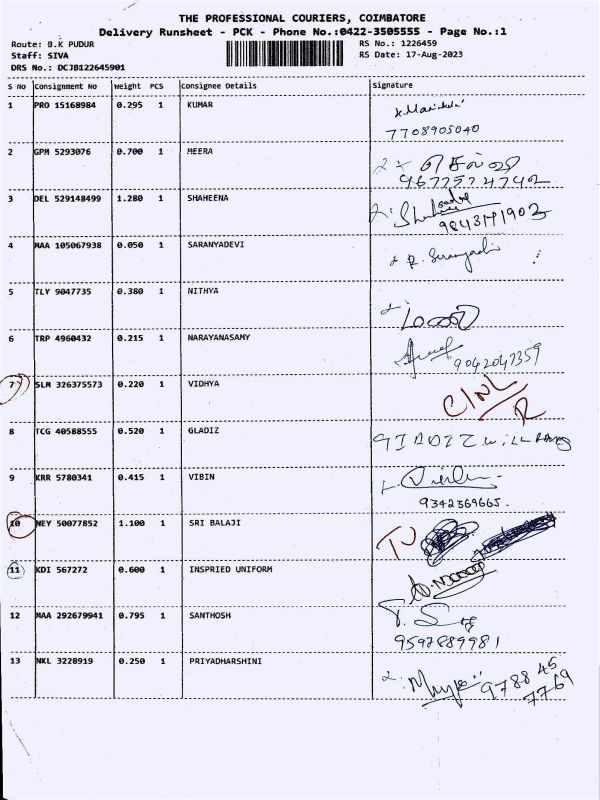 THE PROFESSIONAL COURIERS, COIMBATORE
Delivery Runsheet - PCK - Phone No.:0422-3505555 - Page No.:1
Route: B.K PUDUR RS No.: 1226459
Staff: SIVA RS Date: 17-Aug-2023
DRS No.: DCJB122645901
S No Consignment No Weight PCS Consignee Details Signature
1 PRO 15168984 0.295 1 KUMAR
7708905040
2 GPM 5293076 0.700 1 MEERA செல்வி
9677574742
3 DEL 529148499 1.280 1 SHAHEENA
9843171902
4 MAA 105067938 0.050 1 SARANYADEVI
5 TLY 9047735 0.380 1 NITHYA
6 TRP 4960432 0.215 1 NARAYANASAMY 9042047359
7 SLM 326375573 0.220 1 VIDHYA
8 TCG 40588555 0.520 1 GLADIZ
9 KRR 5780341 0.415 1 VIBIN
9342569665.
10 NEY 50077852 1.100 1 SRI BALAJI
11 KDI 567272 0.600 1 INSPRIED UNIFORM
12 MAA 292679941 0.795 1 SANTHOSH
9597889981
13 NKL 3228919 0.250 1 PRIYADHARSHINI 9788 45
7769